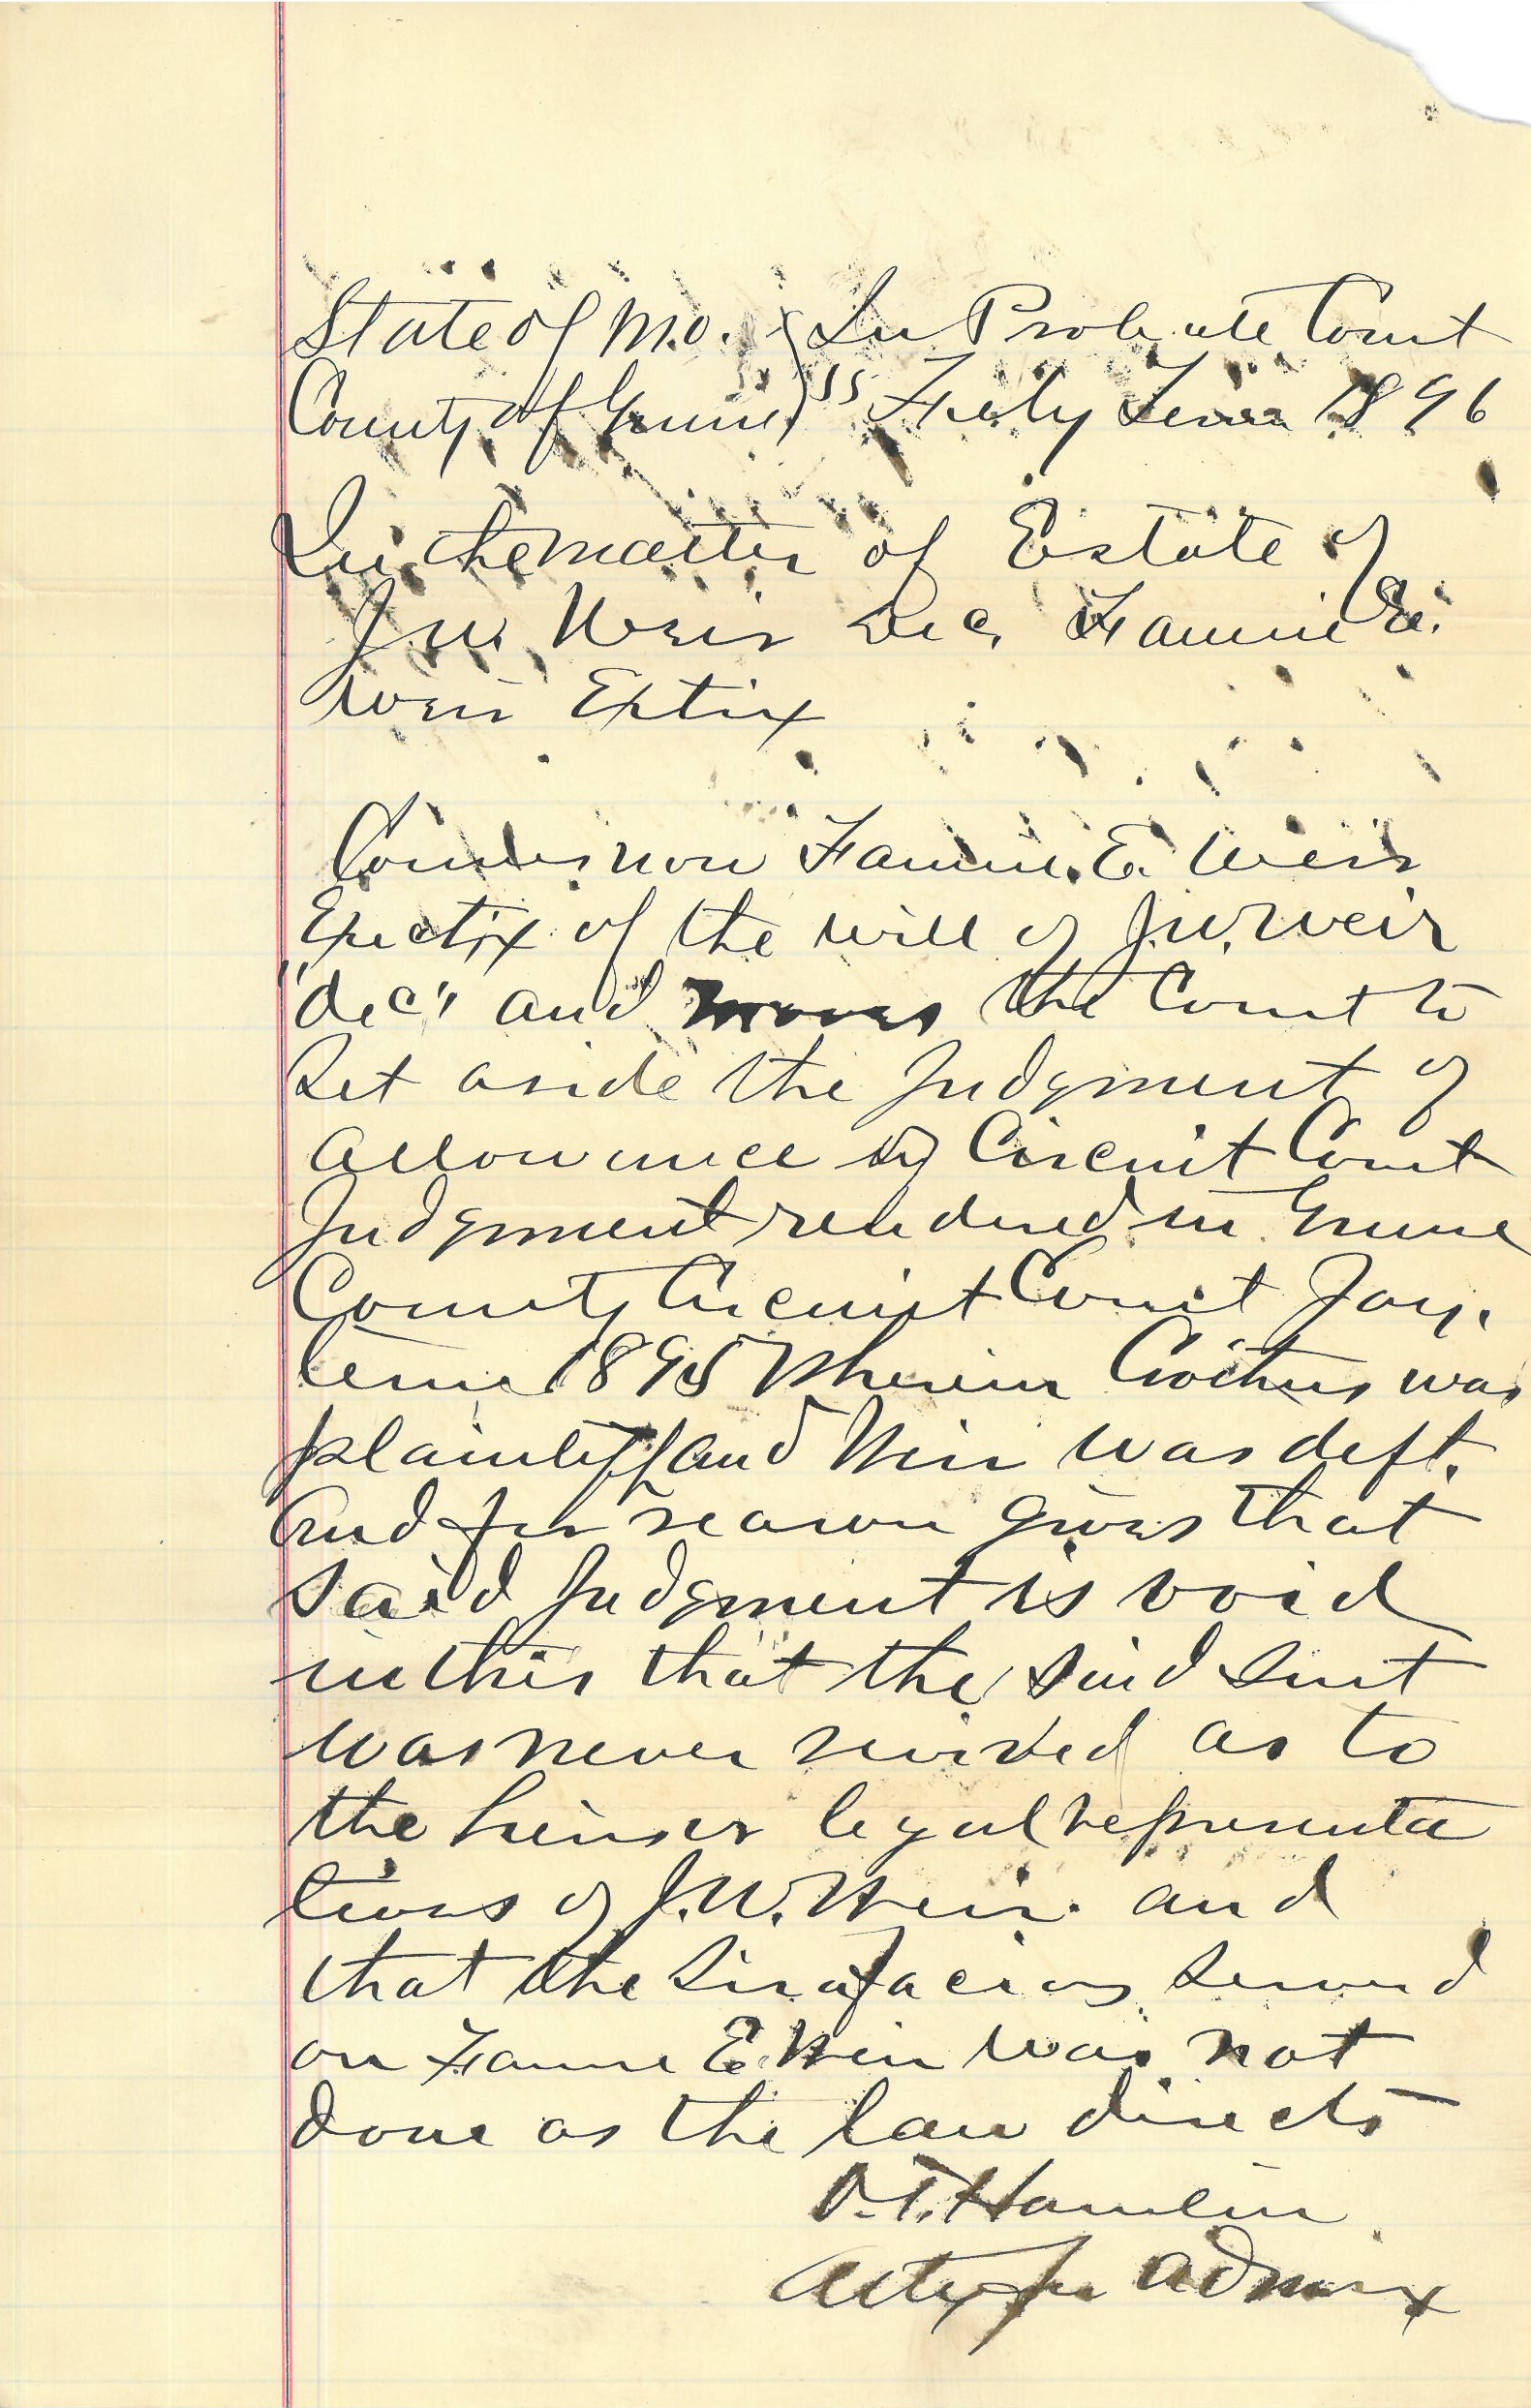 State of Mo. } In Probate Court
County of Greene } ss Term 1896
In the matter of Estate of
J.W. Weir Dec, Fannie E.
Weir Extix
Comes now Fannie E. Weir
Exectix of the will of J.W. Weir
"dec" and moves the Court to
Set aside the Judgment of
allowance by Circuit Court
Judgment rendered in Greene
County Circuit Court Jany.
term 1895 Wherein was
plaintiff and Weir was deft.
And for reason gives that
said Judgment is void
in this that the said suit
was never revived as to
the heirs or legal representa
tives of J.W. Weir. and
that the Sirafacias served
on Fannie E. Weir was not
done as the law directs
O.T. Hamlin
Atty for Admrx